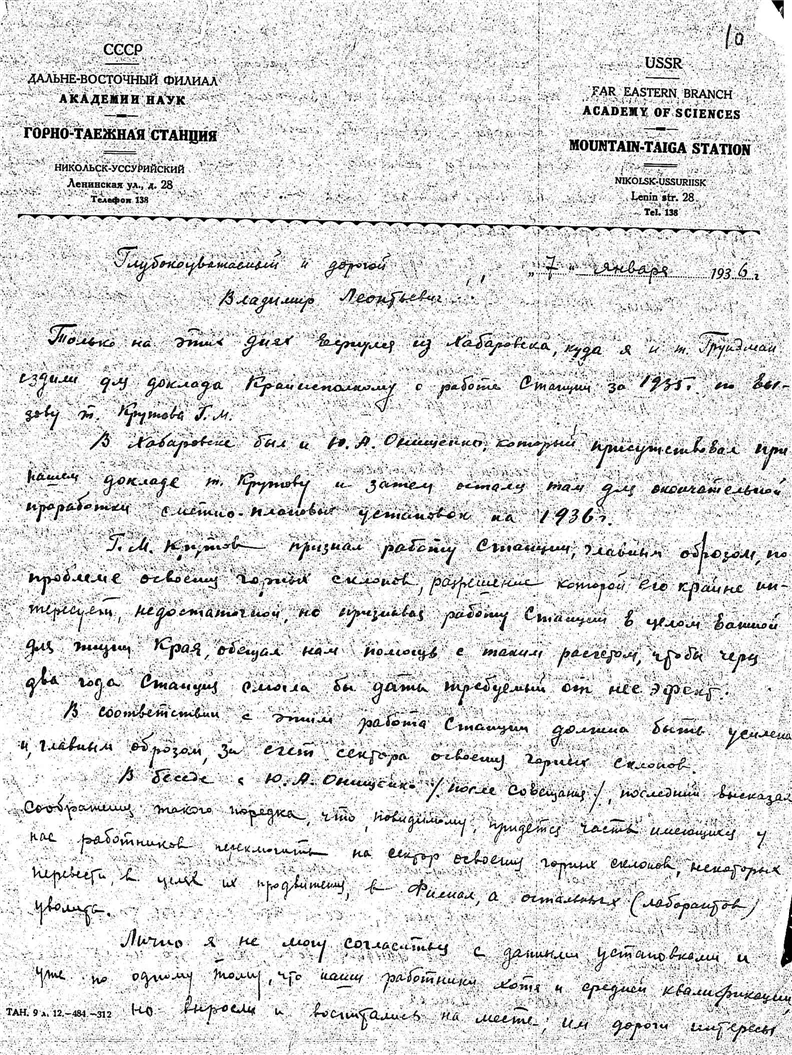 10
СССР
ДАЛЬНЕ-ВОСТОЧНЫЙ ФИЛИАЛ
АКАДЕМИИ НАУК
ГОРНО-ТАЕЖНАЯ СТАНЦИЯ
НИКОЛЬСК-УССУРИЙСКИЙ
Ленинская ул., д. 28
Телефон 138
USSR
FAR EASTERN BRANCH
ACADEMY OF SCIENCES
MOUNTAIN-TAIGA STATION
NIKOLSK-USSURIISK
Lenin str. 28
Tel. 138
„7" января 1936 г.
Глубокоуважаемый и дорогой
Владимир Леонтьевич!
Только на этих днях вернулся из Хабаровска, куда я и т. Грундман
ездили для доклада Крайисполкому о работе Станции за 1935 г. по вы-
зову т. Крутова Г.М.
В Хабаровске был и Ю.А. Онищенко, который присутствовал при
нашем докладе т. Крутову и затем остался там для окончательной
проработки сметно-плановых установок на 1936 г.
Г.М. Крутов признал работу Станции, главным образом, по
проблеме освоения горных склонов, разрешение которой его крайне ин-
тересует, недостаточной, но признавая работу Станции в целом важной
для жизни Края, обещал нам помощь с таким расчетом, чтобы через
два года Станция смогла бы дать требуемый от нее эфект.
В соответствии с этим работа Станции должна быть усилена
и, главным образом, за счет сектора освоения горных склонов.
В беседе с Ю.А. Онищенко /после совещания/, последний высказал
соображения такого порядка, что, повидимому, придется часть имеющихся у
нас работников переключить на сектор освоения горных склонов, некоторых
перевести, в целях их продвижения, в Филиал, а остальных (лаборантов)
уволить.
Лично я не могу согласиться с данными установками и
уже по одному тому, что наши работники хотя и средней квалификации,
но выросли и воспитались на месте; им дороги интересы
ТАН. 9 л. 12.—484.—312